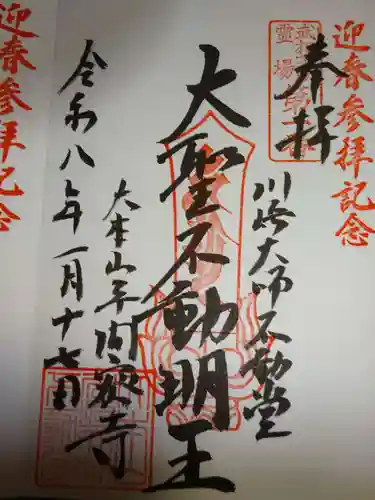 迎春参拝記念
奉拝
川崎大師不動堂
大聖不動明王
大本山平間寺
令和八年一月十七日
迎春参拝記念